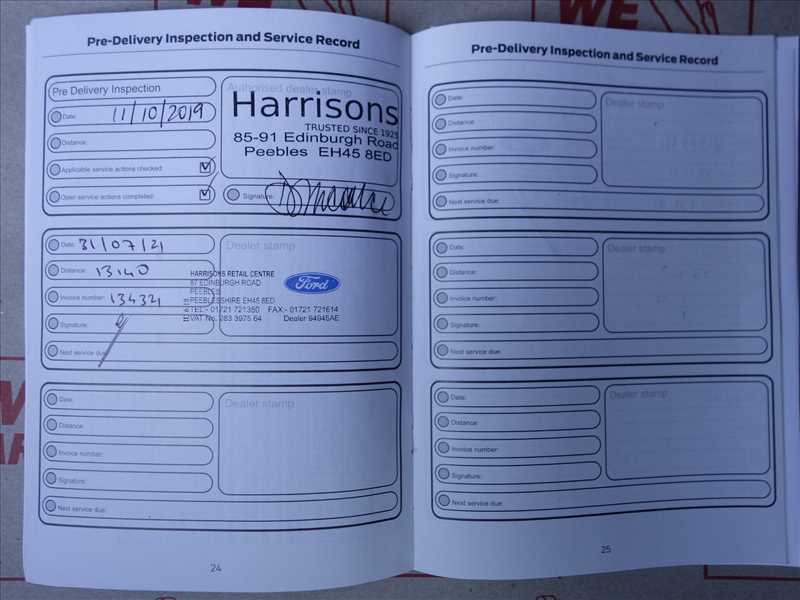 WE
Pre-Delivery Inspection and Service Record
Pre Delivery Inspection
Date: 11/10/2019
Distance:
Applicable service actions checked:
Open service actions completed:
Authorised dealer stamp
Harrisons
TRUSTED SINCE 1925
85-91 Edinburgh Road
Peebles EH45 8ED
Signature:
Date: 31/07/21
Distance: 13140
Invoice number: 13432
Signature:
Next service due:
Dealer stamp
HARRISONS RETAIL CENTRE
87 EDINBURGH ROAD
PEEBLES
PEEBLESSHIRE EH45 8ED
TEL:- 01721 721350 FAX:- 01721 721614
VAT No. 283 3975 64 Dealer 94945AE
Ford
Date:
Distance:
Invoice number:
Signature:
Next service due:
Dealer stamp
24
Pre-Delivery Inspection and Service Record
Date:
Distance:
Invoice number:
Signature:
Next service due:
Dealer stamp
Date:
Distance:
Invoice number:
Signature:
Next service due:
Dealer stamp
Date:
Distance:
Invoice number:
Signature:
Next service due:
Dealer stamp
25